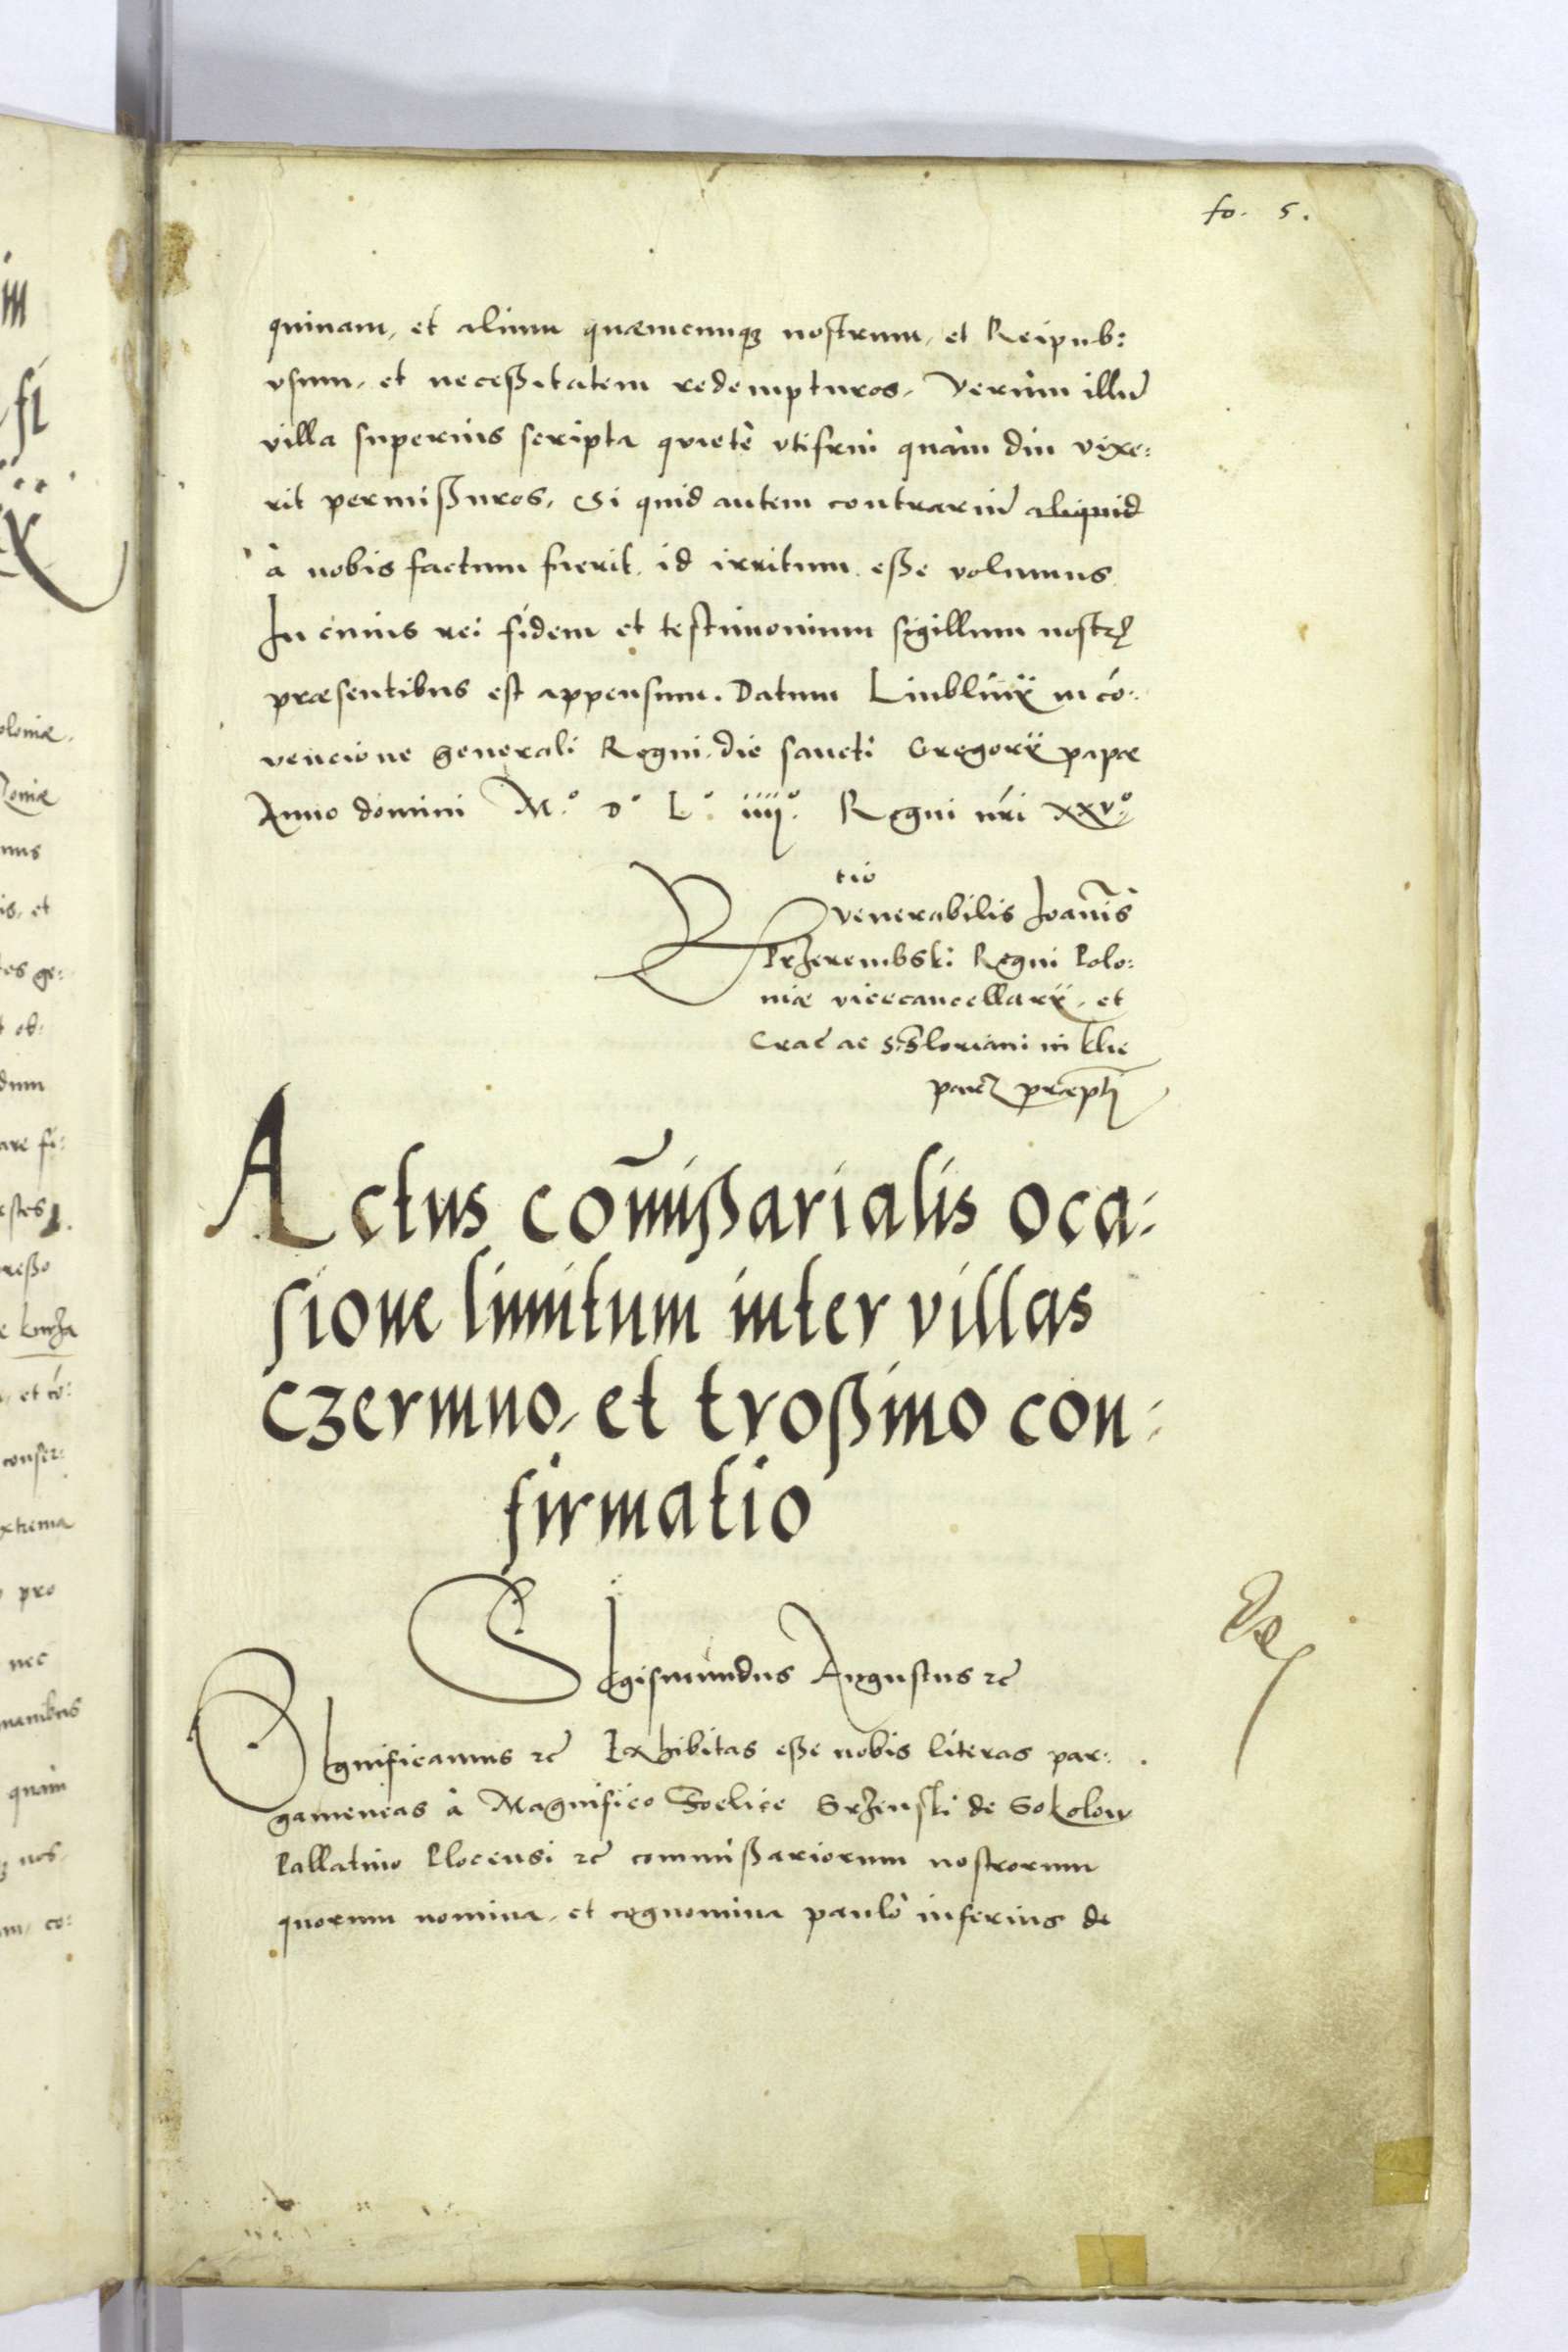 fo. 5.
quinam, et alium quæmcunqȝ nostrum, et Reipub:
vsum, et neceßitatem redempturos, Verùm illũ
villa superius scripta quietè vtifrui quàm diu vixe:
rit permißuros, Si quid autem contrariũ aliquid
à nobis factum fuerit, id irritum eße volumus
In cuius rei fidem et testimonium sigillum nostrũ
præsentibus est appensum. Datum Liublinij in cõ:
vencione generali Regni, die sancti Gregorij papæ
Anno domini M.º D.º L.º iiij.º Regni nr̃i xxv.º
Rtio
venerabilis Joannis
Przerembski Regni Polo:
niæ vicecancellarij, et
Crac̃ ac S. Floriani in Kle
par̃ præpti
Actus com̃ißarialis oca:
sione limitum inter villas
czermno, et troßino con:
firmatio
Sigismundus Augustus ꝛc̃
Significamus ꝛc̃ Exhibitas eße nobis literas par:
gameneas à Magnifico Foelice Srzenski de Sokolow
Pallatino Plocensi ꝛc̃ commißariorum nostrorum
quorum nomina, et cognomina paulò inferius de